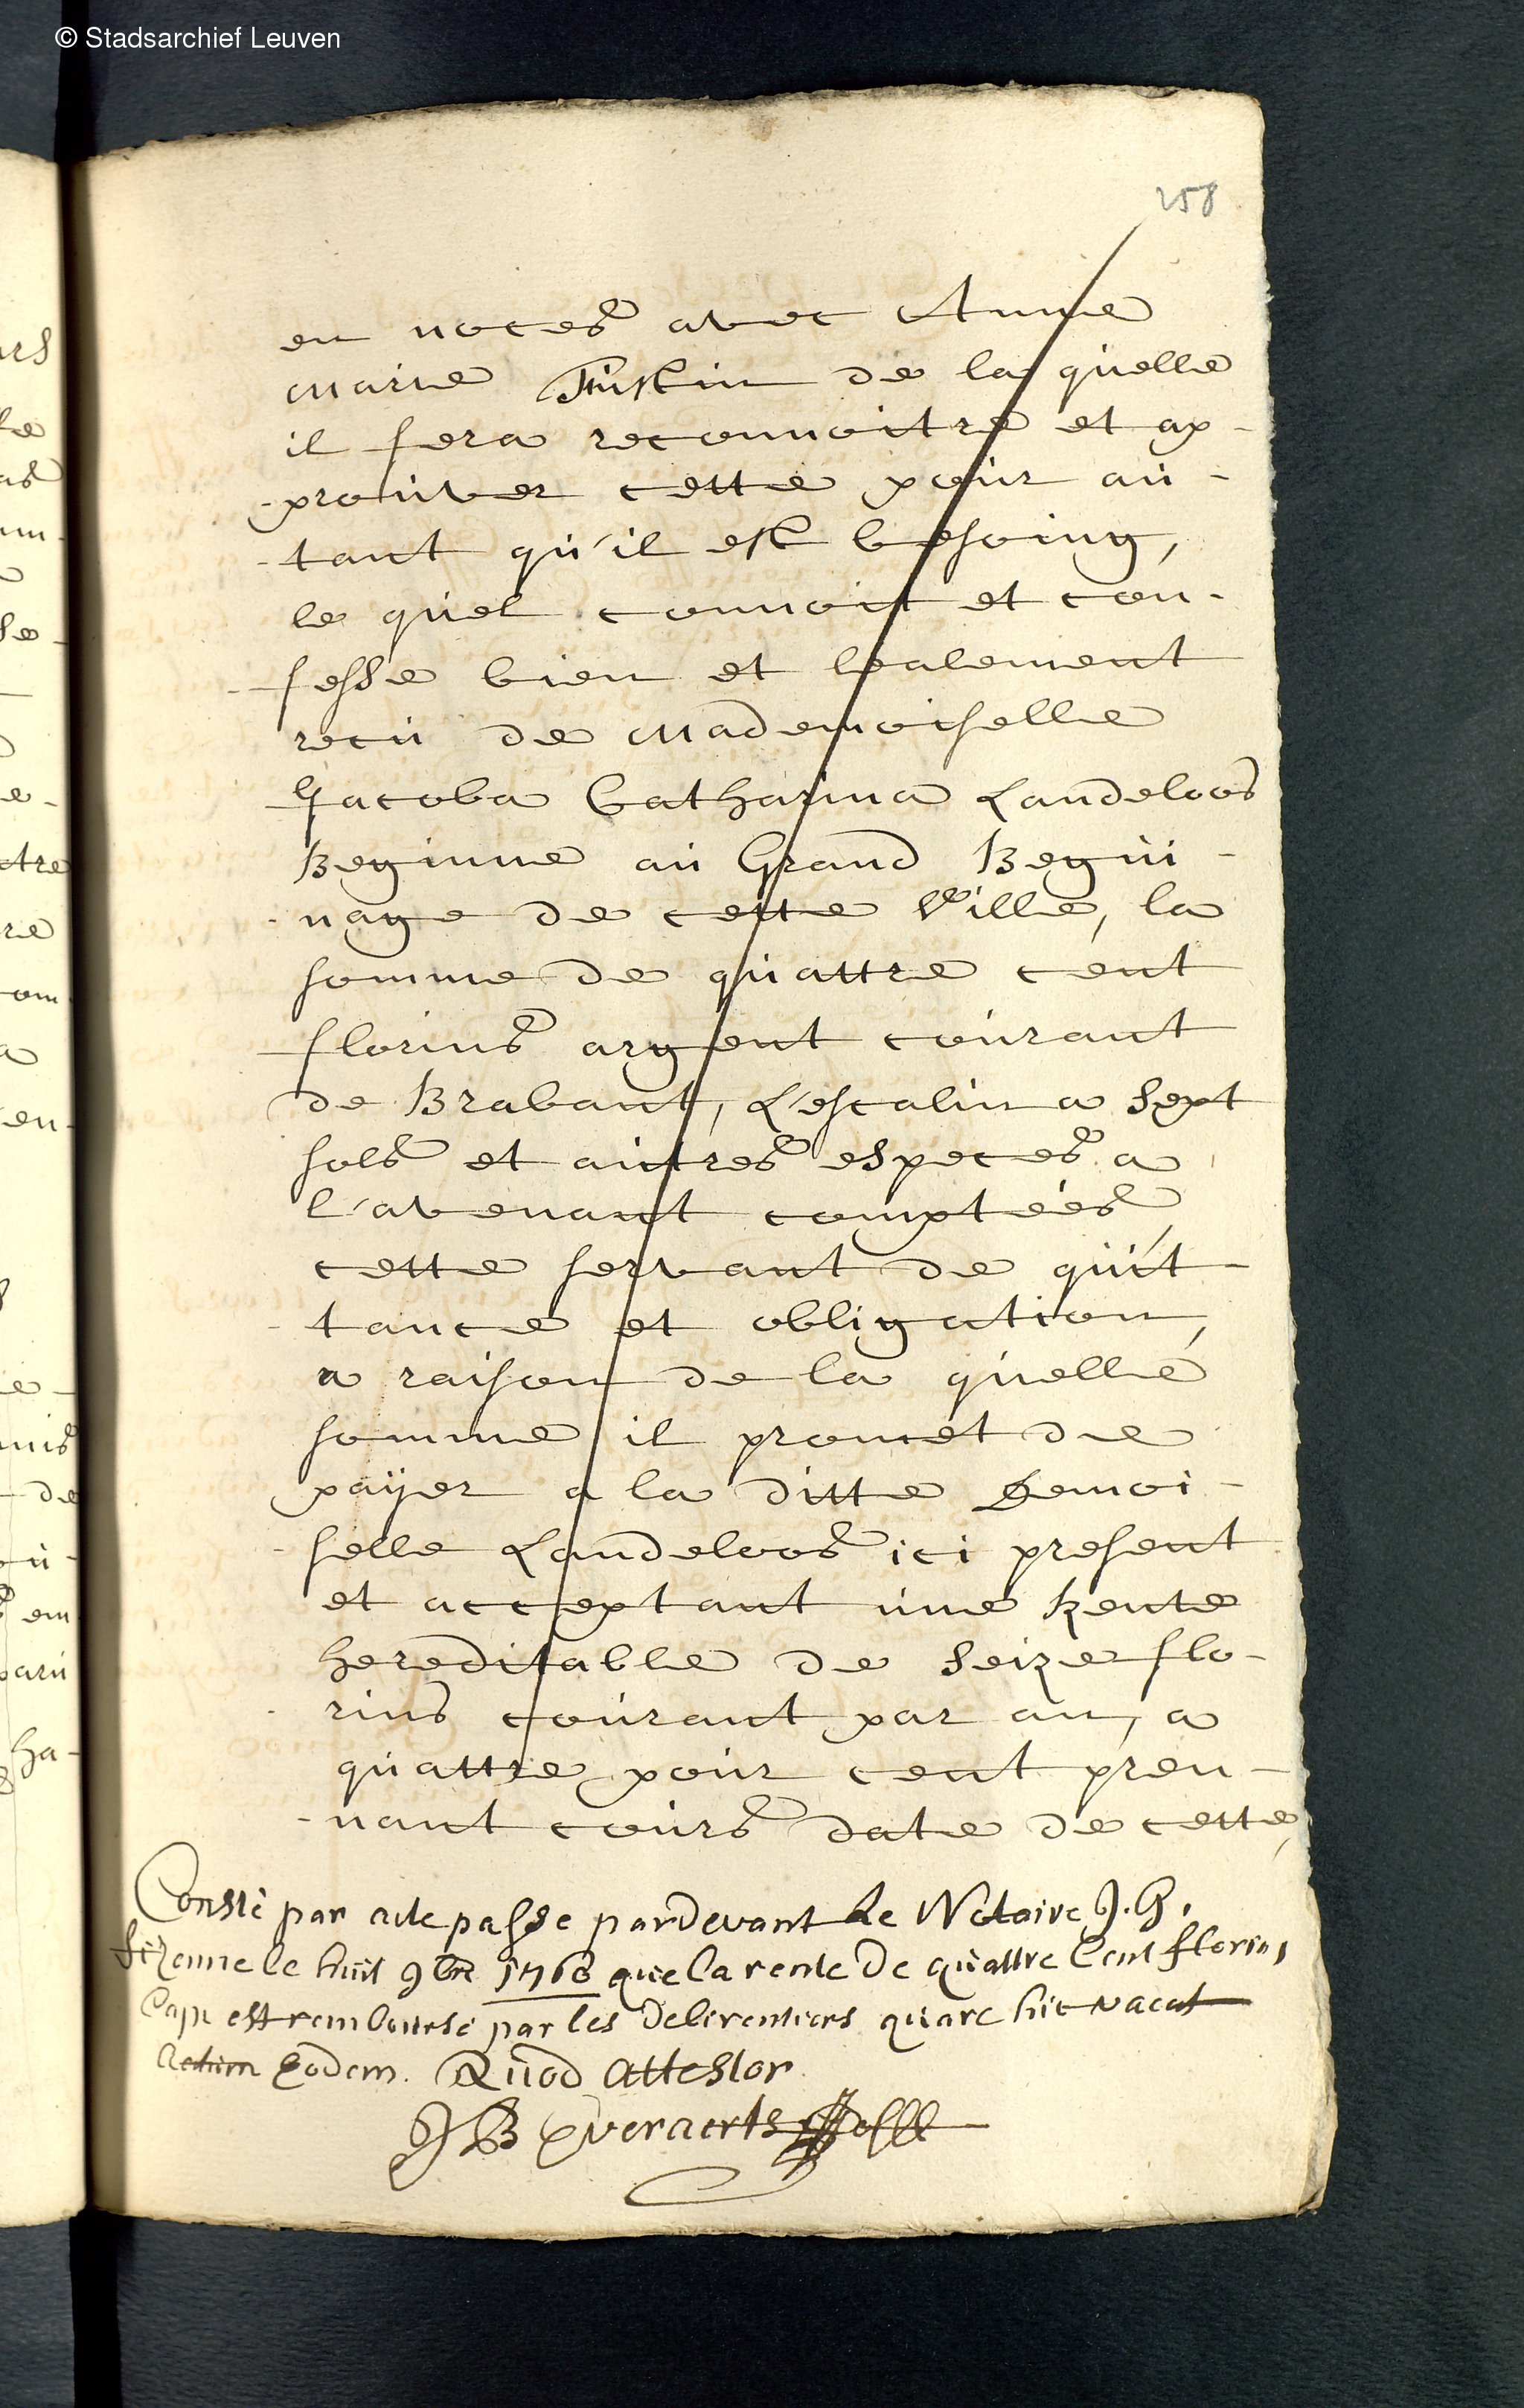 © Stadsarchief Leuven
258
en noces avec Anne
Marie Justin de la quelle
il fera reconnoitre et ap-
-prouver cette pour au-
-tant qu'il est besoing,
le quel connoit et con-
-fesse bien et lealement
recu de Mademoiselle
Jacoba Catharina Landeloos
Beginne au Grand Begui-
-nage de cette Ville, la
somme de quattre cent
florins argent courant
de Brabant, L'escalin a sept
sols et autres especes a
l'avenant comptées,
cette servant de quit-
-tance et obligation,
a raison de la quelle
somme il promet de
payer a la ditte Demoi-
-selle Landeloos ici present
et acceptant une Rente
hereditable de seize flo-
-rins courant par an, a
quattre pour cent pren-
-nant cours date de cette,
Consté par acte passe pardevant Le Notaire J. G.
le huit 9bre 1768 que la rente de quattre Cent florins
Cap est remboursé par les debirentiers quare hic vacat
Actum Eodem. Quod Attestor
JB Everaerts